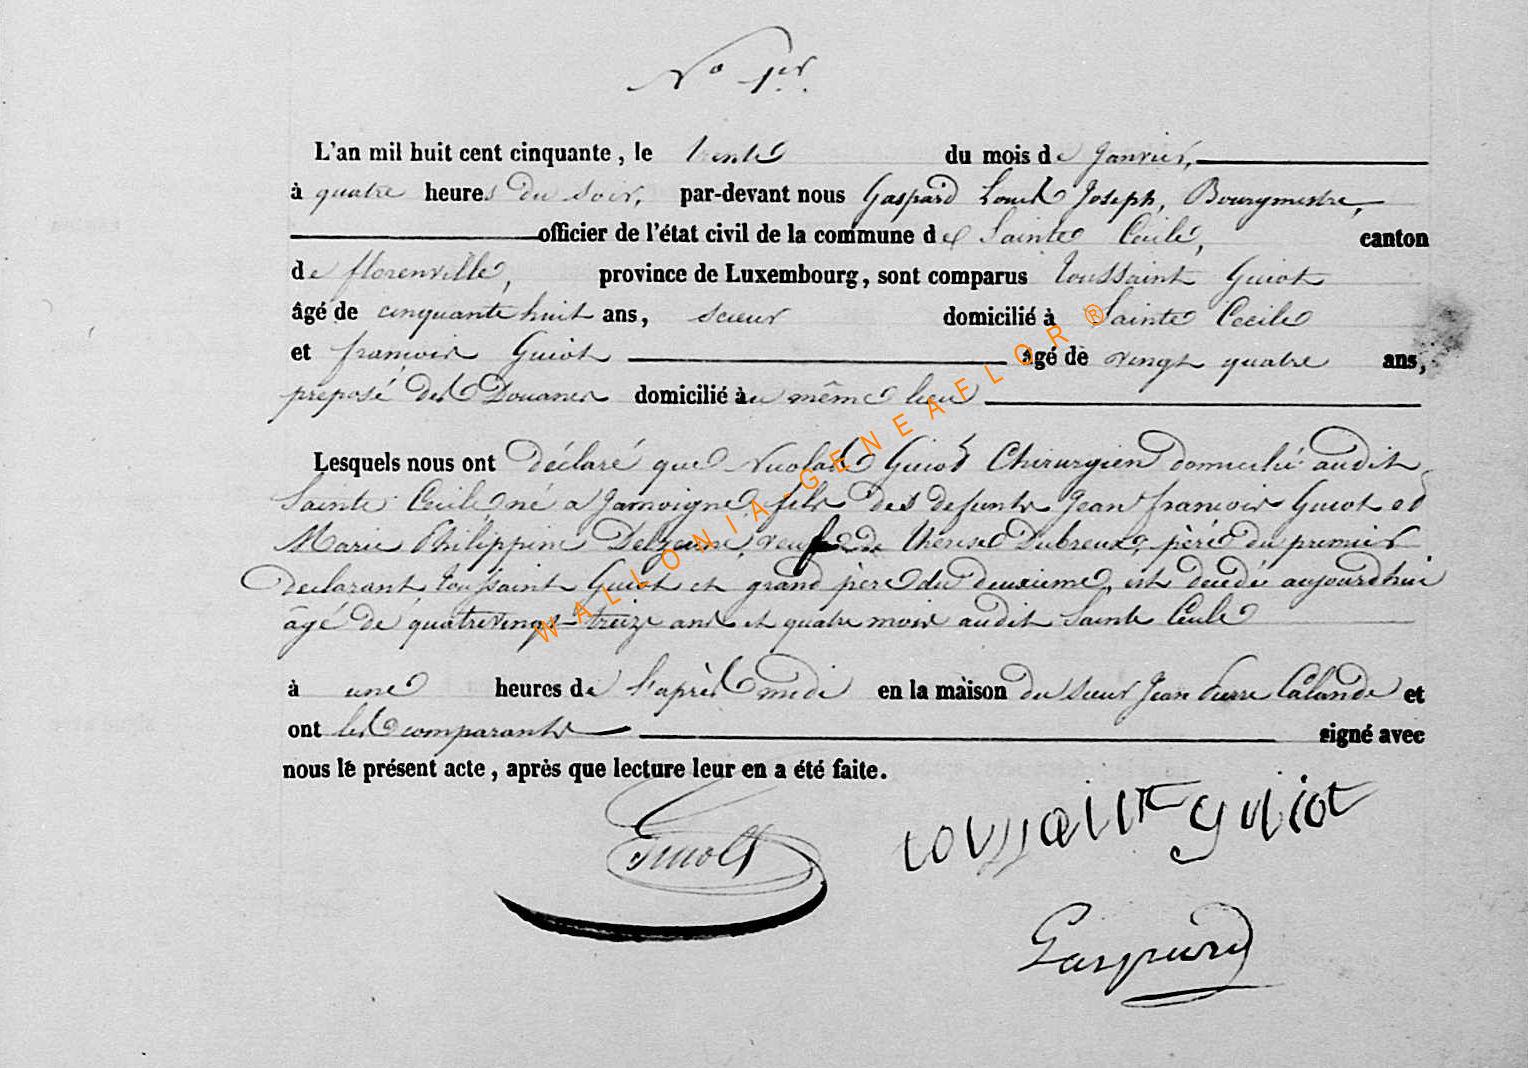 N° 1er.
L'an mil huit cent cinquante, le trente du mois de Janvier,
à quatre heures du soir, par-devant nous Gaspard Louis Joseph, Bourgmestre,
officier de l'état civil de la commune de Sainte Cécile, canton
de florenville, province de Luxembourg, sont comparus Toussaint Guiot
âgé de cinquante huit ans, scieur domicilié à Sainte Cecile
et françois Guiot âgé de vingt quatre ans,
préposé des Douanes domicilié au même lieu
Lesquels nous ont déclaré que Nicolas Guiot Chirurgien domicilié audit
Sainte Cecile né a Jamoigne, fils des defunts Jean françois Guiot et
Marie Philippine veuf de Thérèse Dubreux, père du premier
declarant Toussaint Guiot et grand père du deuxieme, est decédé aujourdhui
âgé de quatrevingt-treize ans et quatre mois audit Sainte Cecile
à une heures de l'après midi en la maison du sieur Jean Pierre Calande et
ont les comparants signé avec
nous le présent acte, après que lecture leur en a été faite.
Guiot
toussaint guiot
Gaspard
WALLONIA-GENEAELOR®